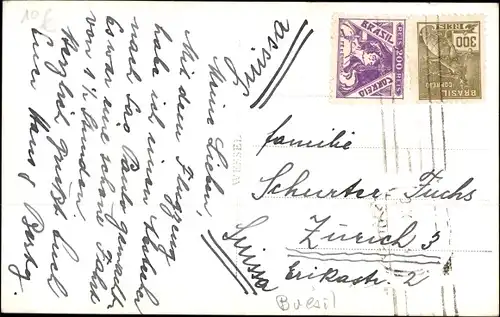 10 €
Suissa
Meine Lieben,
Mit dem Flugzeug
habe ich einen
nach Sao Paulo gemacht.
Es war eine schöne Fahrt
von 1½ Stunden.
Herzlich grüsst Euch
Euer Hans & Berty.
WESSEL
BRASIL
CORREIO
200 REIS
300
REIS
BRASIL
CORREIO
Familie
Scheurter-Fuchs
Zürich 3
Erikastr. 2
Suissa
Brésil